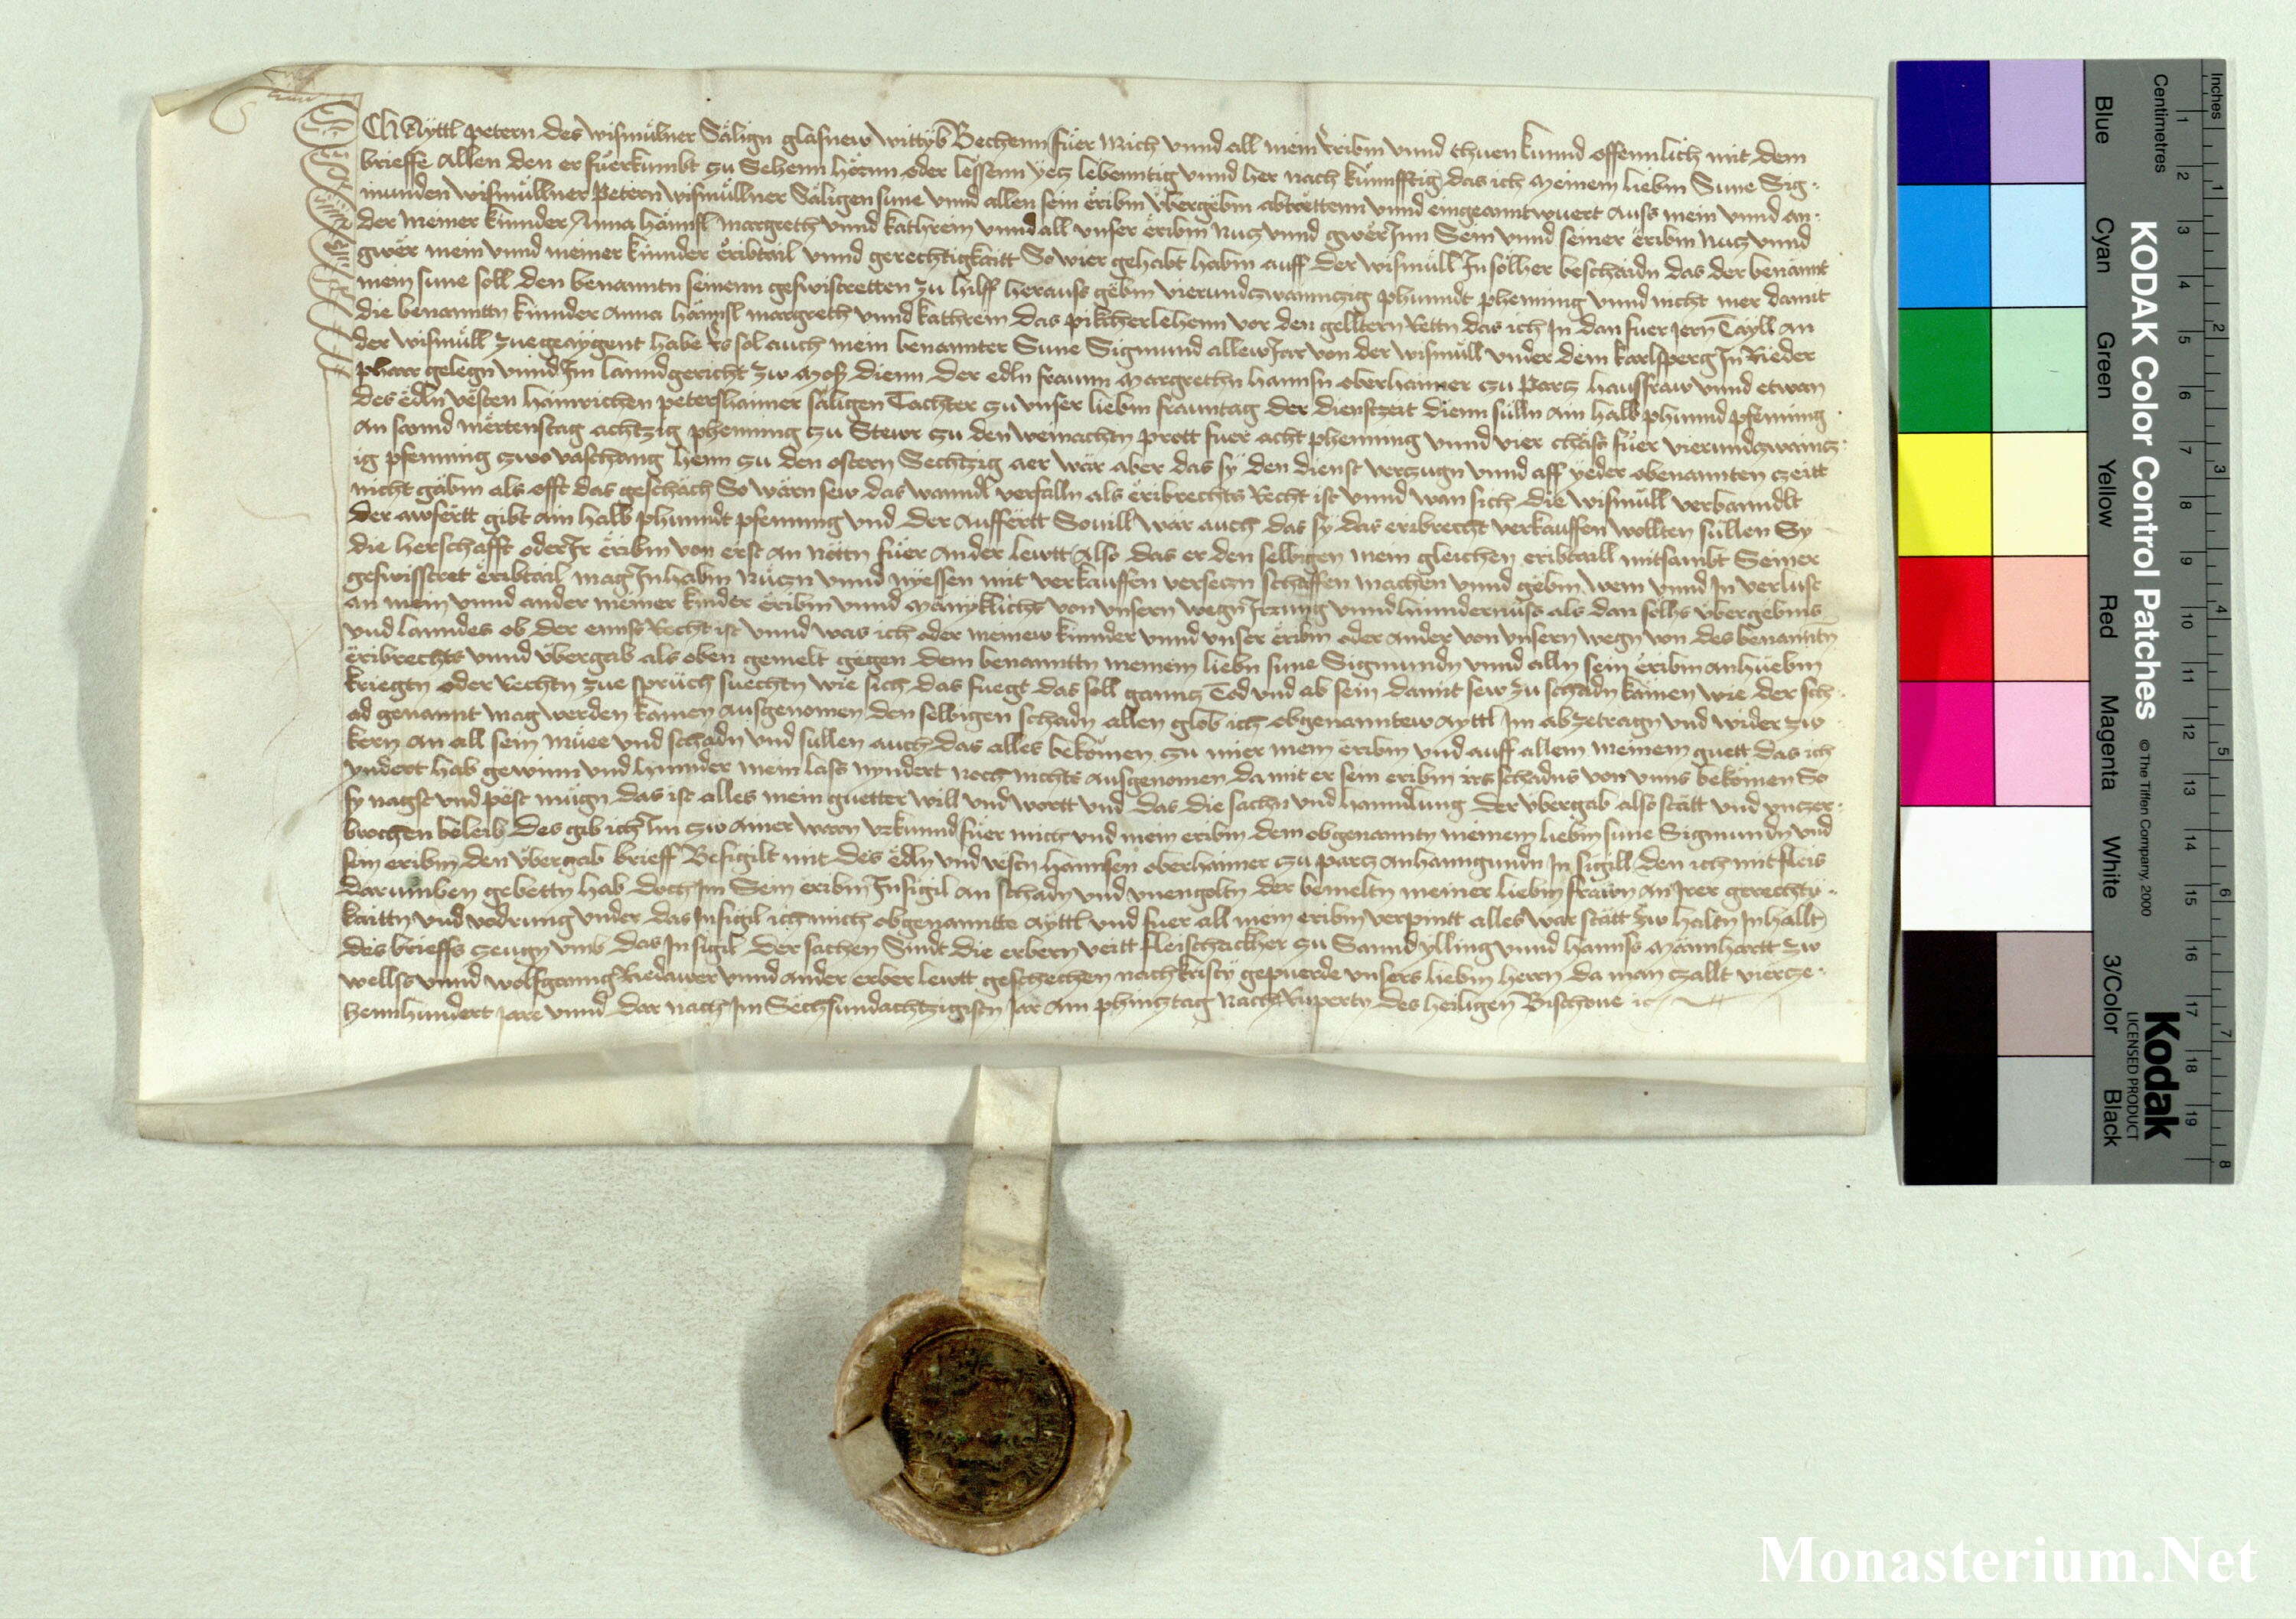 ICh Ayttl petern des wismülner Sälign glasnew wittyb Bechenn füer Mich vnnd all mein Eribm vnnd thuen kunnd offennlich mit dem
brieffe Allen den er füerkumbt zu Sehenn hörnn oder lessenn yetz lebenntig vnnd her nach künnfftig das ich Meinem liebm Sune Sig-
munden wismüllner Petern wismüllner Säligen sune vnnd allen sein eribm übergebm abtrettenn vnnd eingeanntwuert Auss mein vnnd an-
der Meiner kinnder Anna hännsl margreth vnnd kathrein vnnd all vnser eribm Nutz vnnd gwer Inn Sein vnnd seiner eribm Nutz vnnd
gwer mein vnnd meiner kinnder eribtail vnnd gerechtigkaitt So wier gehabt habm auff der wismüll In solher beschaidn das der benannt
mein sune soll den benanntn seinenn geswistretten zu hilff herauss gebm vierundzwainnzig phunndt phenning vnnd nicht mer damit
die benanntn kinnder Anna hännsl margreth vnnd kathrein das pikcherlehenn vor den gelltern Rettn das ich In dan fuer Iern Tayll an
der wismüll zuegeaygent habe Es sol auch mein benannter Sune Sigmund allew Iar von der wismüll vnder dem karlsperg In Rieder
pharr gelegn vnnd Im lanndgericht zw Mos dienn der edln fraunn Margrethn hannsn oberhaimer zu partz haussfraw vnnd etwan
des edln vesten hainrichen petershaimer säligen Tachter zu vnser liebm frauntag der dienstzeit dienn sülln Ain halb phunnd pfenning
An sannd mertenstag achtzig phenning zu Stewr zu den weinachtn prott fuer acht phenning vnnd vier chäss füer vierundzwaintz-
ig pfenning zwo vaschang henn zu den ostern Sechtzig aer wär aber das sy den dienst vertzugn vnnd aff yeder obenannten zeitt
nicht gäbm als offt das geschäch So wärn sew das wanndl verfalln als eribrechts Recht ist vnnd wan sich die wismüll verbanndlt
der awfertt gibt Ain halb phunndt pfenning vnd der Auffertt Souill wär auch das sy das eribrecht verkauffen wollten süllen Sy
die herschafft oder Ir eribm von erst an nettn füer Ander lewtt Also das er den selbigen mein gleichen eribtaill mitsambt Seiner
geswisstret eribtail mag Inhabm Nützn vnnd nyessen mit verkauffen versetzn schaffen machen vnnd gebm wem vnnd In verlust
An mein vnnd ander meiner kinder eribm vnnd Mänyklichs von vnsern wegn Irrung vnnd hinndernüss als dan solhs übergebms
vnd lanndes ob der enns Recht ist vnnd was ich oder meinew kinnder vnnd vnser eribm oder ander von vnsern wegn von des benanntn
eribrechts vnnd übergab als oben gemelt gegen dem benanntn meinem liebn sune Sigmundn vnnd alln sein eribm anhuebm
kriegtn oder Rechtn zue sprüch suechtn wie sich das fuegt das soll gannz Tod vnd ab sein damit sew zu schadn kämen wie der sch-
ad genannt mag werden kämen Ausgenomen den selbigen schadn allen glob ich obgenanntew Ayttl Im abzetragn vnd wider zw
kern An all sein müee vnd schadn vnd sullen auch das alles bekömen zu mier mein eribm vnd auff allem meinem guett das ich
yndert hab gewinn vnd hinnder mein lass nyndert noch nichts Ausgenomen damit er sein eribm irs schadns von vnns bekömen So
sy nagst vnd pest mügn das ist alles mein guetter will vnd wortt vnd das die sachn vnd hanndlung der übergab also stätt vnd vntzer-
brochen beleib des gib ich Im zw Ainer warn vrkunnd füer mich vnd mein eribm dem obgenanntn meinem liebm sune Sigmundn vnd
sein eribm den übergab brieff Besigilt mit des edln vnd vestn hannsen oberhaimer zu partz Anhanngundn Insigill den ich mit fleis
darumben gebettn hab doch Im Sein eribm Insigil an schadn vnd vnengoltn der bemeltn meiner liebm frawn An Irer gerechti-
kaittn vnd vodrung vnder das Insigil ich mich obgenannte Ayttl vnd fuer all mein eribm verpintt alles war stätt zw haltn Inhallt
des brieffs zeugn vmb das Insigil der sachen Sindt die erbern veitt fleischackher zu Sannd ylling vnnd hanns Männhartt zw
wellss vnnd wolfganng Riedawer vnnd ander erber lewtt geschechen nach kristi gepuerde vnsers liebm herrn da man zallt vierze-
henhundert Jare vnnd dar nach Im Sechsundachtzigistn Jar Am phintztag Nach Rupertn des heiligen Bischoue ic
Inches
Centimetres
1 2 3 4 5 6 7 8
1 2 3 4 5 6 7 8 9 10 11 12 13 14 15 16 17 18 19
KODAK Color Control Patches
© The Tiffen Company, 2000
Kodak
LICENSED PRODUCT
Blue Cyan Green Yellow Red Magenta White 3/Color Black
Monasterium.Net